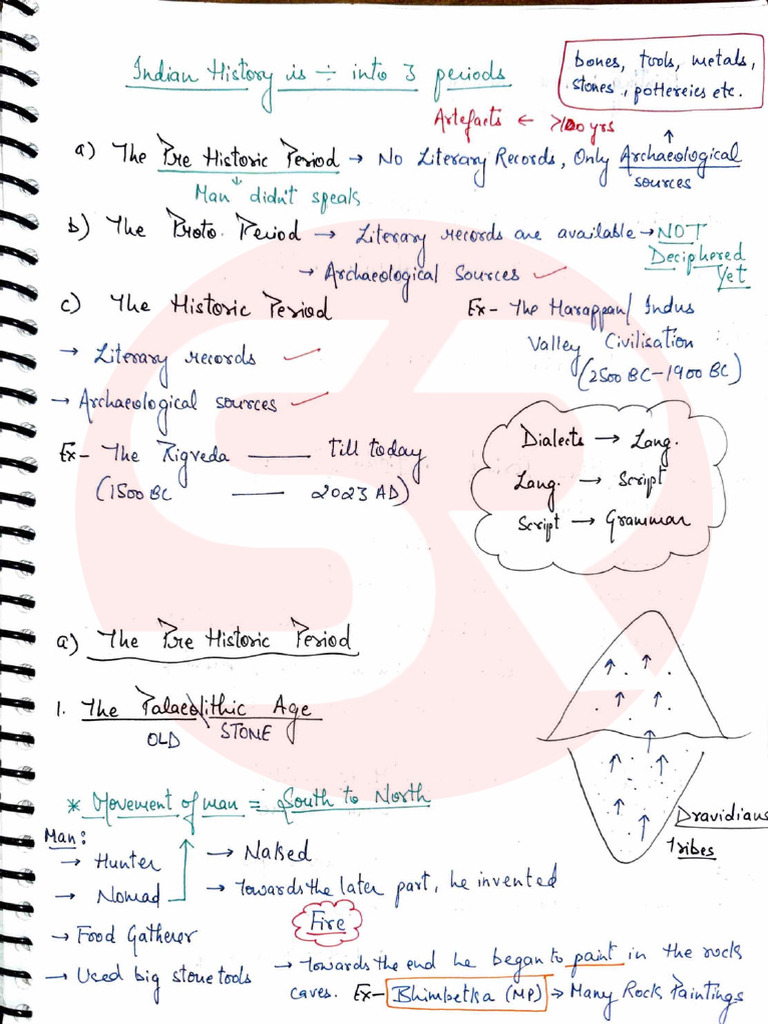 Indian History is ÷ into 3 periods
bones, tools, metals,
stones, pottereies etc.
Artefacts ← >100 yrs
a) The Pre Historic Period → No Literary Records, Only Archaeological
sources
Man didn't speak
b) The Proto. Period → Literary records are available → NOT
Deciphered
Yet
→ Archaeological Sources ✓
c) The Historic Period
Ex- The Harappan/Indus
Valley Civilisation :
(2500 BC-1900 BC)
→ Literary records ✓
→ Archaeological sources ✓
Ex- The Rigveda —— Till today
(1500 BC —— 2023 AD)
Dialects → Lang.
Lang. → Script
Script → Grammar
SR
a) The Pre Historic Period
1. The Palaeolithic Age
OLD STONE
* Movement of man = South to North
Dravidians
Tribes
Man:
→ Hunter
→ Nomad
→ Food Gatherer
→ Used big stone tools
→ Naked
→ Towards the later part, he invented
Fire
→ Towards the end he began to paint in the rock
caves. Ex- Bhimbetka (MP) → Many Rock Paintings